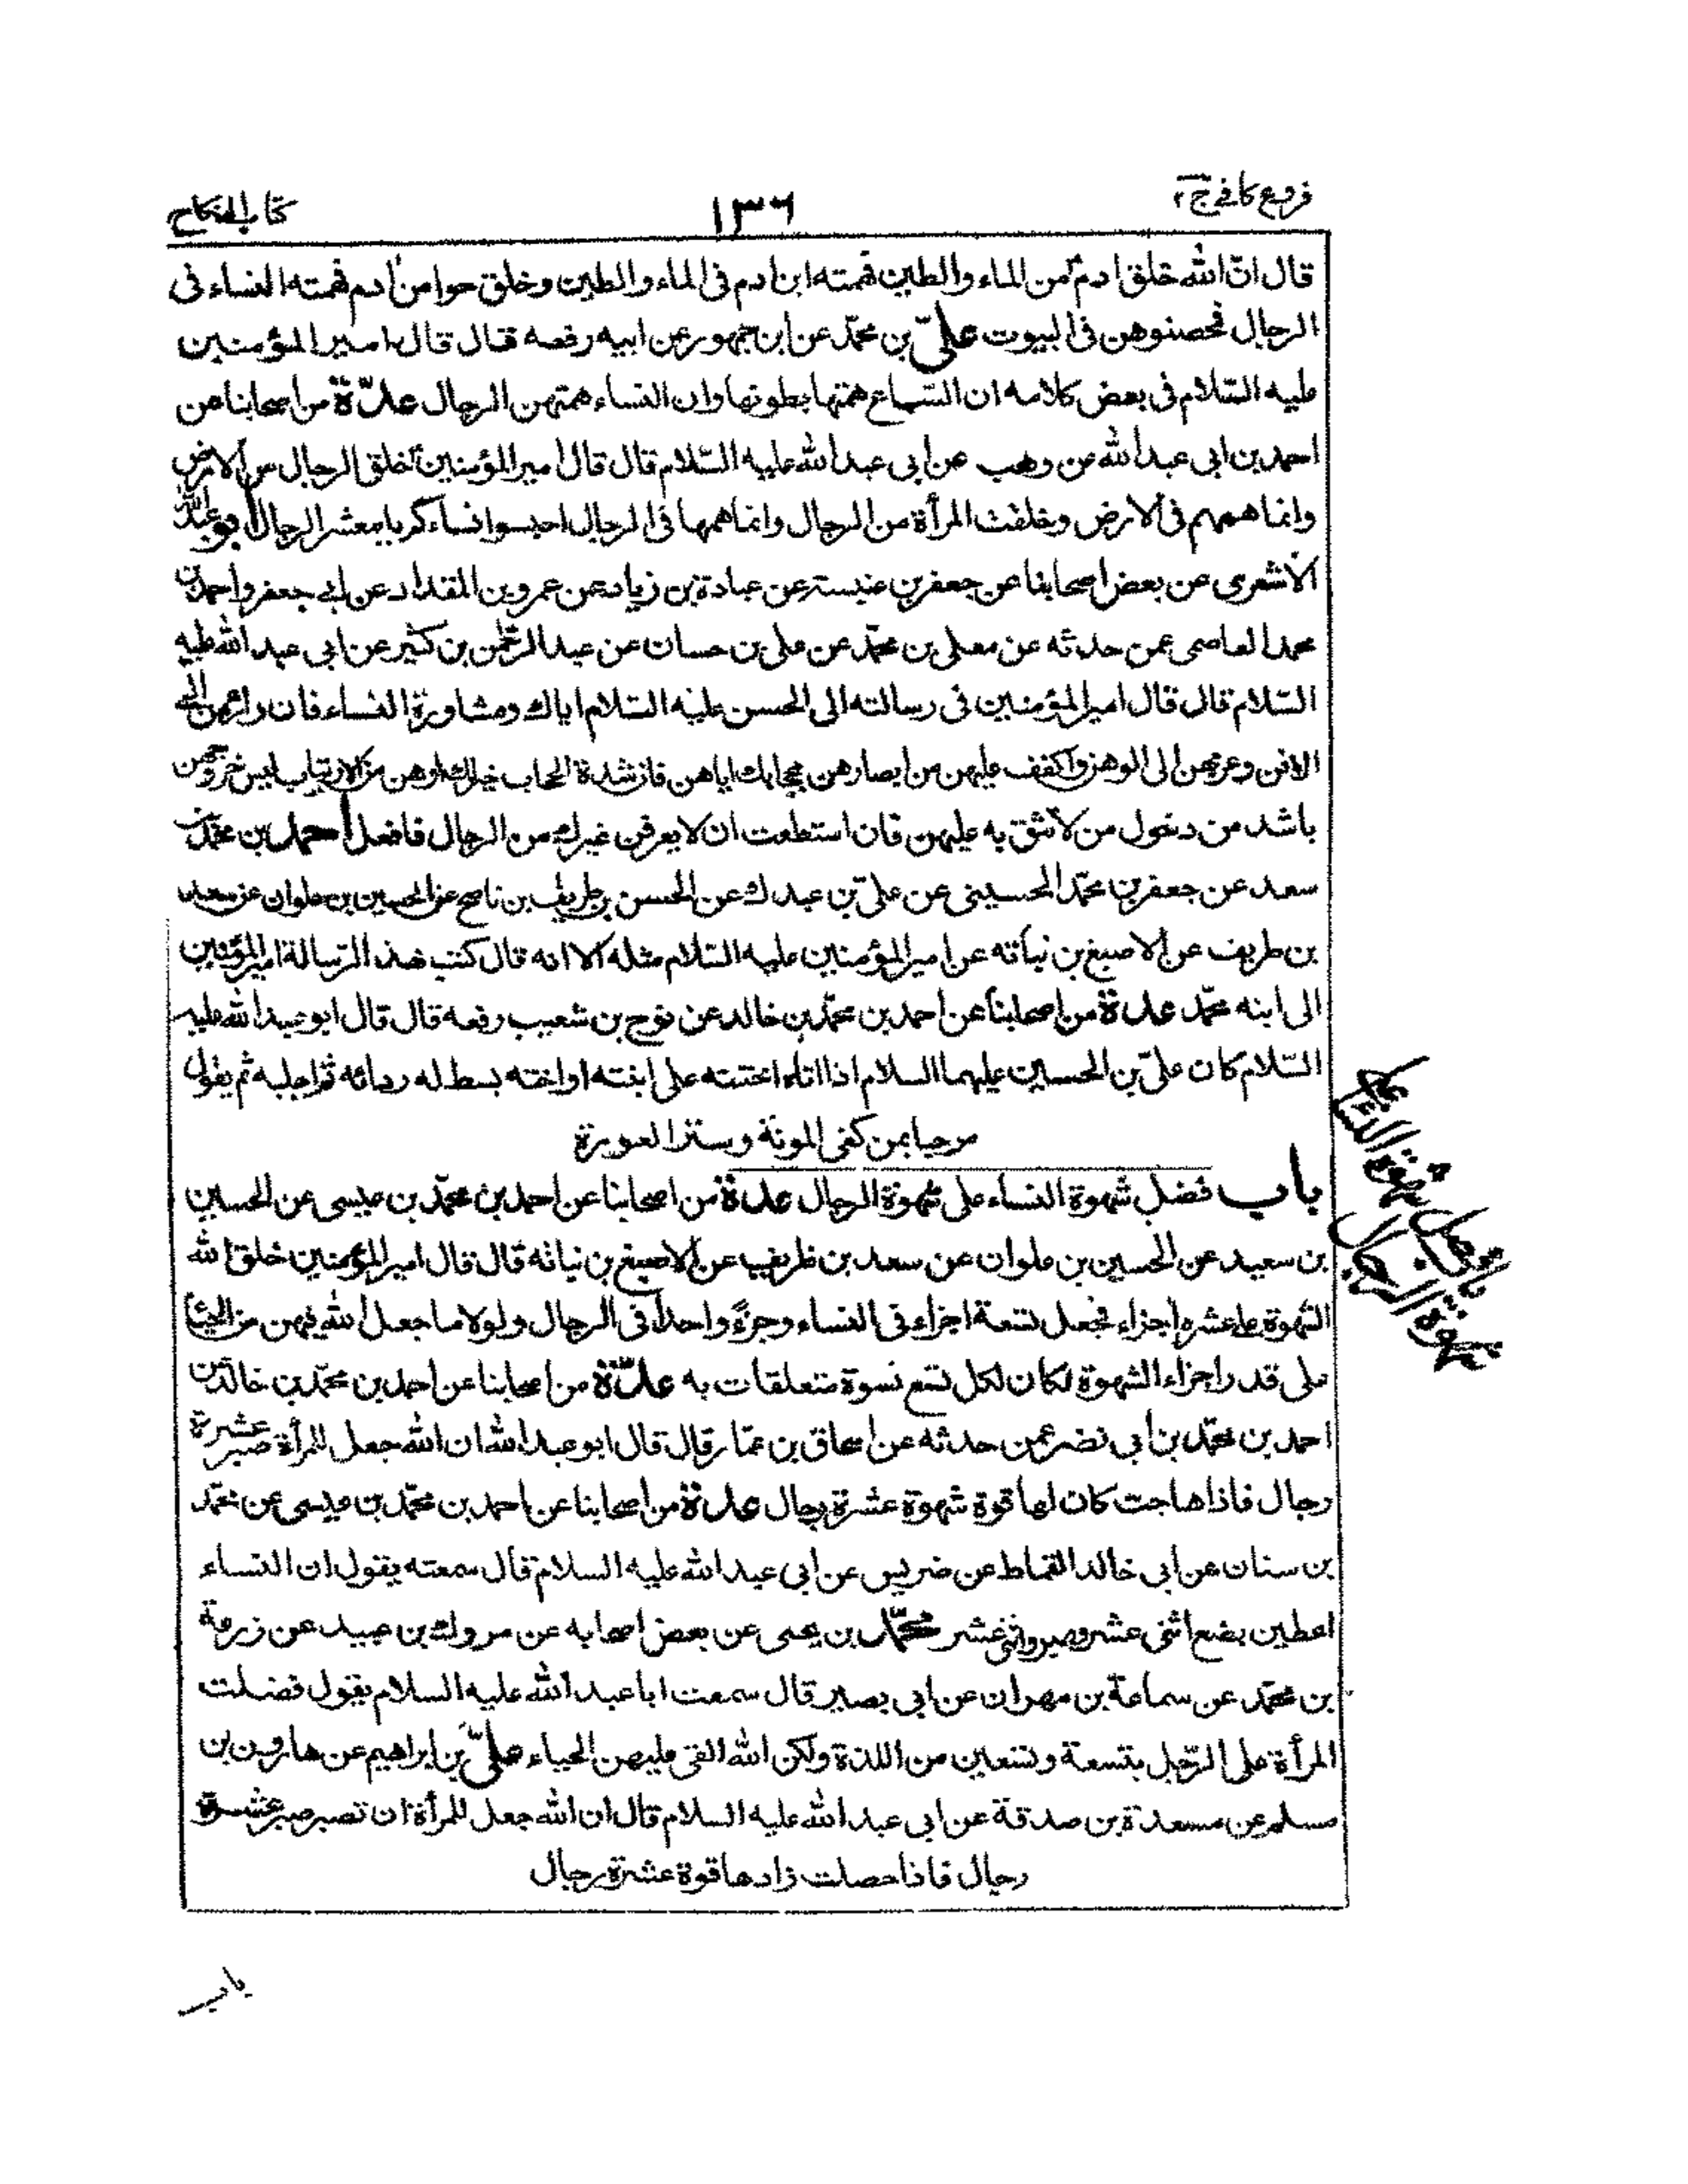 فروع كافي ج ٢
١٣٦
كتاب النكاح
قال انّ الله خلق ادم من الماء والطين فهمته ابن ادم فى الماء والطين وخلق حوا من ادم فهمته النساء فى
الرجال فحصنوهن فى البيوت علىّ بن محمّد عن ابن جمهور عن ابيه رفعه قال قال امير المؤمنين
عليه السّلام فى بعض كلامه ان السّباع همّتها بطونها وان النساء همتهن الرجال عدّة من اصحابنا عن
احمد بن ابى عبد الله عن وهب عن ابى عبد الله عليه السّلام قال قال امير المؤمنين خلق الرجال من الارض
وانما همهم فى الارض وخلقت المرأة من الرجال وانما همها فى الرجال احبسوا نساءكم يا معشر الرجال ابو عبد الله
الاشعرى عن بعض اصحابنا عن جعفر بن عنبسة عن عبادة بن زياد عن عمرو بن المقدام عن ابى جعفر واحمد بن
محمد العاصمى عمن حدثه عن معلى بن محمّد عن على بن حسان عن عبد الرّحمن بن كثير عن ابى عبد الله عليه
السّلام قال قال امير المؤمنين فى رسالته الى الحسن عليه السّلام اياك ومشاورة النساء فان رائهن الى
الافن وعزمهن الى الوهن واكفف عليهن من ابصارهن بحجابك اياهن فان شدة الحجاب خير لك ولهن من الارتياب ليس خروجهن
باشد من دخول من لا تثق به عليهن فان استطعت ان لا يعرفن غيرك من الرجال فافعل احمد بن محمّد بن
سعد عن جعفر بن محمّد الحسينى عن علىّ بن عبدك عن الحسن بن ظريف بن ناصح عن الحسين بن علوان عن سعد
بن طريف عن الاصبغ بن نباتة عن امير المؤمنين عليه السّلام مثله الا انه قال كتب هذه الرسالة امير المؤمنين
الى ابنه محمّد عدة من اصحابنا عن احمد بن محمّد بن خالد عن نوح بن شعيب رفعه قال قال ابو عبد الله عليه
السّلام كان علىّ بن الحسين عليهما السلام اذا اتاه اختنه على ابنته او اخته بسط له ردائه ثم اجلسه ثم يقول
مرحبا بمن كفى المونة وستر العورة
باب فضل شهوة النساء على شهوة الرجال عدة من اصحابنا عن احمد بن محمّد بن عيسى عن الحسين
بن سعيد عن الحسين بن علوان عن سعد بن ظريف عن الاصبغ بن نباتة قال قال امير المؤمنين خلق الله
الشهوة على عشرة اجزاء فجعل تسعة اجزاء فى النساء وجزءً واحداً فى الرجال ولولا ما جعل الله فيهن من الحياء
على قدر اجزاء الشهوة لكان لكل تسع نسوة متعلقات به عدّة من اصحابنا عن احمد بن محمّد بن خالد بن
احمد بن محمّد بن ابى نضر عمن حدثه عن اسحاق بن عمّار قال قال ابو عبد الله ان الله جعل للمرأة صبر عشرة
رجال فاذا هاجت كان لها قوة شهوة عشرة رجال عدة من اصحابنا عن احمد بن محمّد بن عيسى عن محمّد
بن سنان عن ابى خالد القماط عن ضريس عن ابى عبد الله عليه السلام قال سمعته يقول ان النساء
اعطين بضع اثنى عشر وصبر اثنى عشر محمّد بن يحيى عن بعض اصحابه عن مروك بن عبيد عن زرعة
بن محمّد عن سماعة بن مهران عن ابى بصير قال سمعت ابا عبد الله عليه السلام يقول فضلت
المرأة على الرّجل بتسعة وتسعين من اللذة ولكن الله القى عليهن الحياء علىّ بن ابراهيم عن هارون بن
مسلم عن مسعدة بن صدقة عن ابى عبد الله عليه السلام قال ان الله جعل للمرأة ان تصبر صبر عشرة
رجال فاذا حصلت زادها قوة عشرة رجال
باب